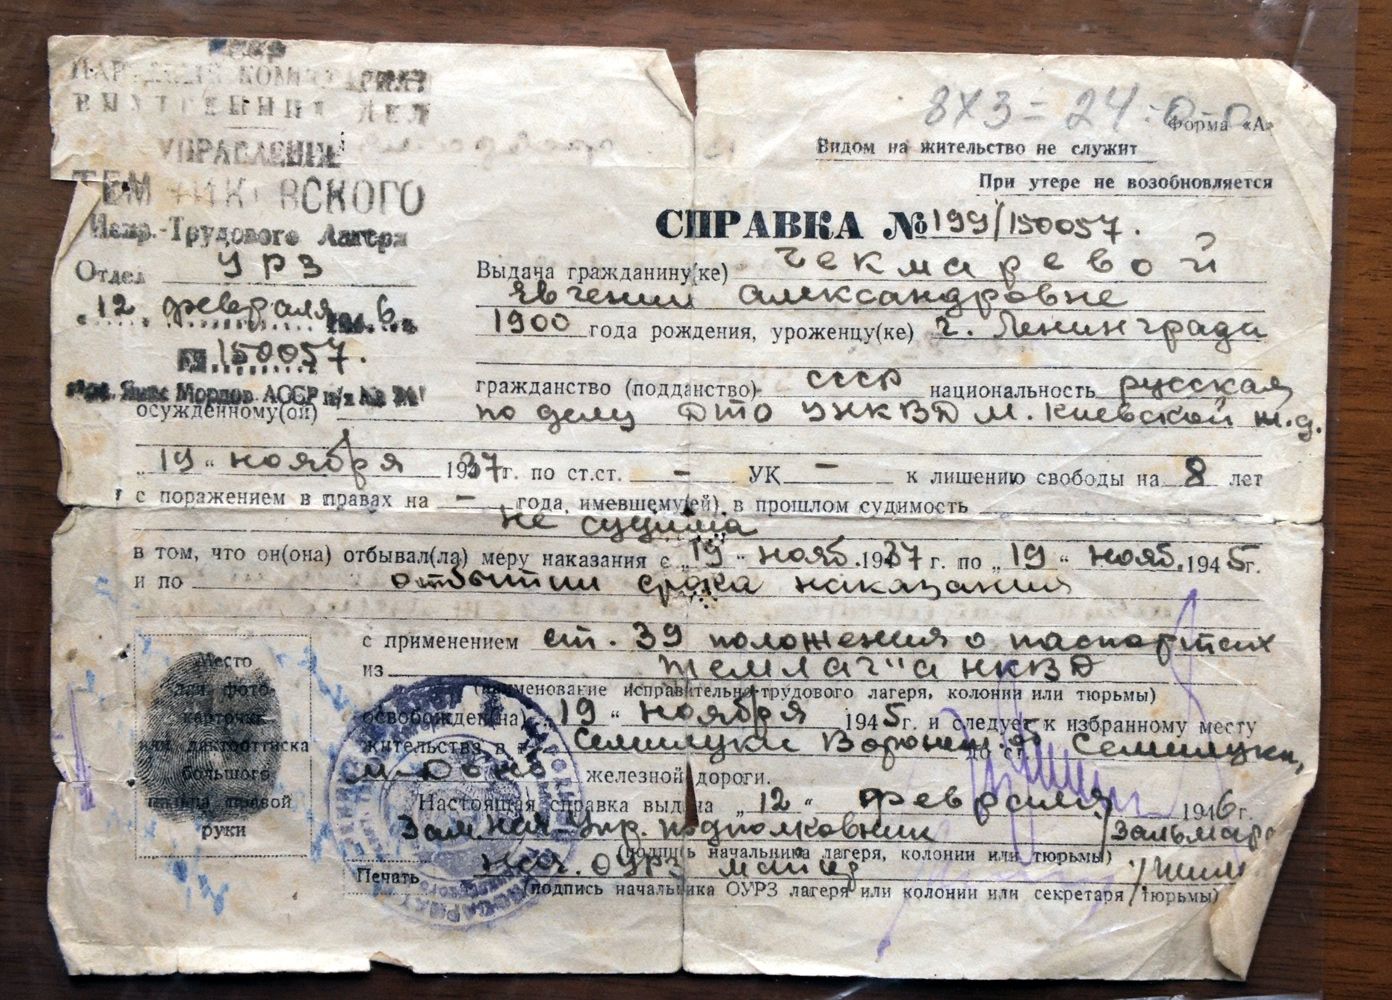 СССР
НАРОДНЫЙ КОМИССАРИАТ
ВНУТРЕННИХ ДЕЛ
УПРАВЛЕНИЕ
ТЕМНИКОВСКОГО
Испр.-Трудового Лагеря
Отдел УРЗ
"12" февраля 1946 г.
№ 150057.
Мордов. АССР п/я №
8х3=24
Форма «А»
Видом на жительство не служит
При утере не возобновляется
СПРАВКА №199/150057.
Выдача гражданину(ке) Чекмаревой
Евгении Александровне
1900 года рождения, уроженцу(ке) г. Ленинграда
гражданство (подданство) СССР национальность русская
осужденному(ой) по делу ДТО УНКВД М. Киевской ж.д.
„19" ноября 1937г. по ст.ст. – УК – к лишению свободы на 8 лет
с поражением в правах на – года, имевшему(ей) в прошлом судимость
не судима
в том, что он(она) отбывал(ла) меру наказания с „19" нояб. 1937 г. по „19" нояб. 1945г.
и по отбытии срока наказания
с применением ст. 39 положения о паспортах
из Темлаг'а НКВД
(наименование исправительно-трудового лагеря, колонии или тюрьмы)
освобожден(на) „19" ноября 1945г. и следует к избранному месту
жительства в г. Семилуки Воронеж. об до ст. Семилуки,
М-Донб железной дороги.
Настоящая справка выдана „12" февраля 1946г.
Зам нач. Упр. подполковник
(подпись начальника лагеря, колонии или тюрьмы)
Печать Нач. ОУРЗ майор
(подпись начальника ОУРЗ лагеря или колонии или секретаря тюрьмы)
Место
для фото-
карточки
или дактооттиска
большого
пальца правой
руки